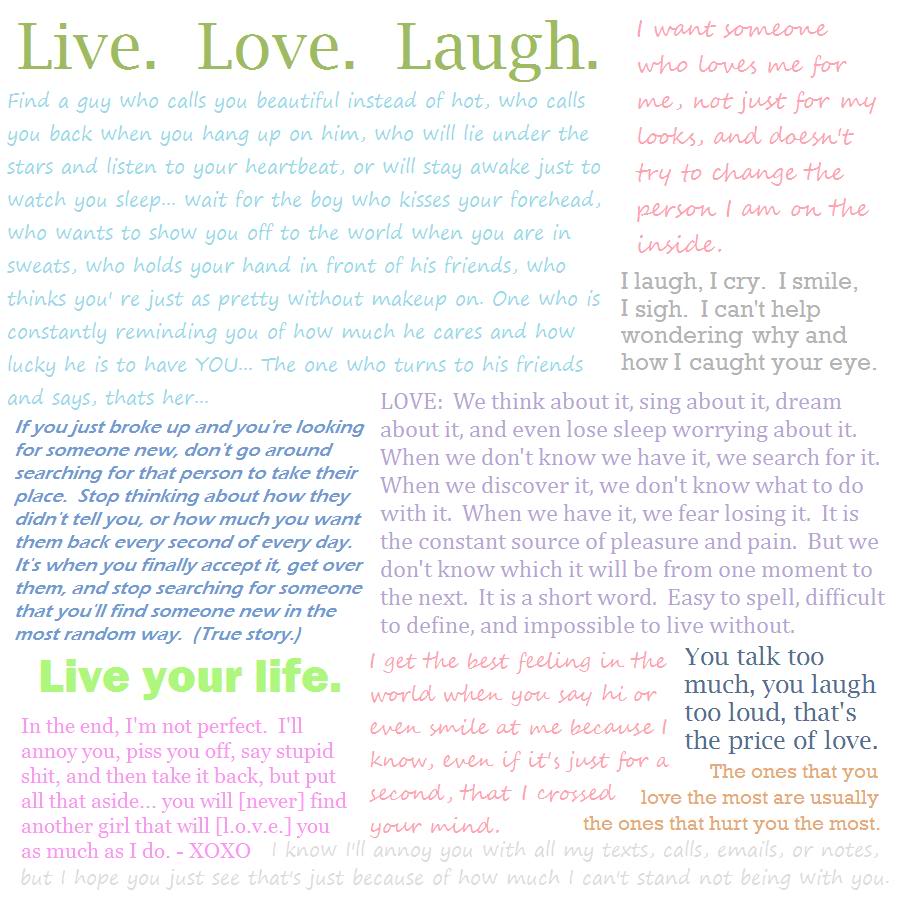 Live.  Love.  Laugh.
Find a guy who calls you beautiful instead of hot, who calls
you back when you hang up on him, who will lie under the
stars and listen to your heartbeat, or will stay awake just to
watch you sleep... wait for the boy who kisses your forehead,
who wants to show you off to the world when you are in
sweats, who holds your hand in front of his friends, who
thinks you' re just as pretty without makeup on. One who is
constantly reminding you of how much he cares and how
lucky he is to have YOU... The one who turns to his friends
and says, thats her...
I want someone
who loves me for
me, not just for my
looks, and doesn't
try to change the
person I am on the
inside.
I laugh, I cry.  I smile,
I sigh.  I can't help
wondering why and
how I caught your eye.
If you just broke up and you're looking
for someone new, don't go around
searching for that person to take their
place.  Stop thinking about how they
didn't tell you, or how much you want
them back every second of every day.
It's when you finally accept it, get over
them, and stop searching for someone
that you'll find someone new in the
most random way.  (True story.)
LOVE:  We think about it, sing about it, dream
about it, and even lose sleep worrying about it.
When we don't know we have it, we search for it.
When we discover it, we don't know what to do
with it.  When we have it, we fear losing it.  It is
the constant source of pleasure and pain.  But we
don't know which it will be from one moment to
the next.  It is a short word.  Easy to spell, difficult
to define, and impossible to live without.
Live your life.
In the end, I'm not perfect.  I'll
annoy you, piss you off, say stupid
shit, and then take it back, but put
all that aside... you will [never] find
another girl that will [l.o.v.e.] you
as much as I do. - XOXO
I get the best feeling in the
world when you say hi or
even smile at me because I
know, even if it's just for a
second, that I crossed
your mind.
You talk too
much, you laugh
too loud, that's
the price of love.
The ones that you
love the most are usually
the ones that hurt you the most.
I know I'll annoy you with all my texts, calls, emails, or notes,
but I hope you just see that's just because of how much I can't stand not being with you.